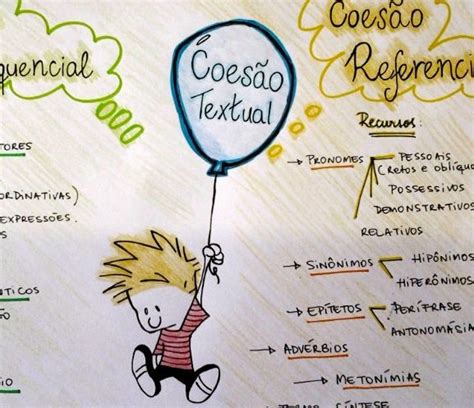 quencial
TORES
ORDINATIVAS)
EXPRESSÕES.
ÁTICOS
Coesão
Textual
Coesão
Referenci
Recursos:
→ PRONOMES
PESSOAIS
(retos e oblíquo
POSSESSIVOS
DEMONSTRATIVOS
RELATIVOS
→ SINÔNIMOS
HIPÔNIMOS
HIPERÔNIMOS
→ EPÍTETOS
PERÍFRASE
ANTONOMÁSIA
→ ADVÉRBIOS
→ METONÍMIAS
SÍNTESE